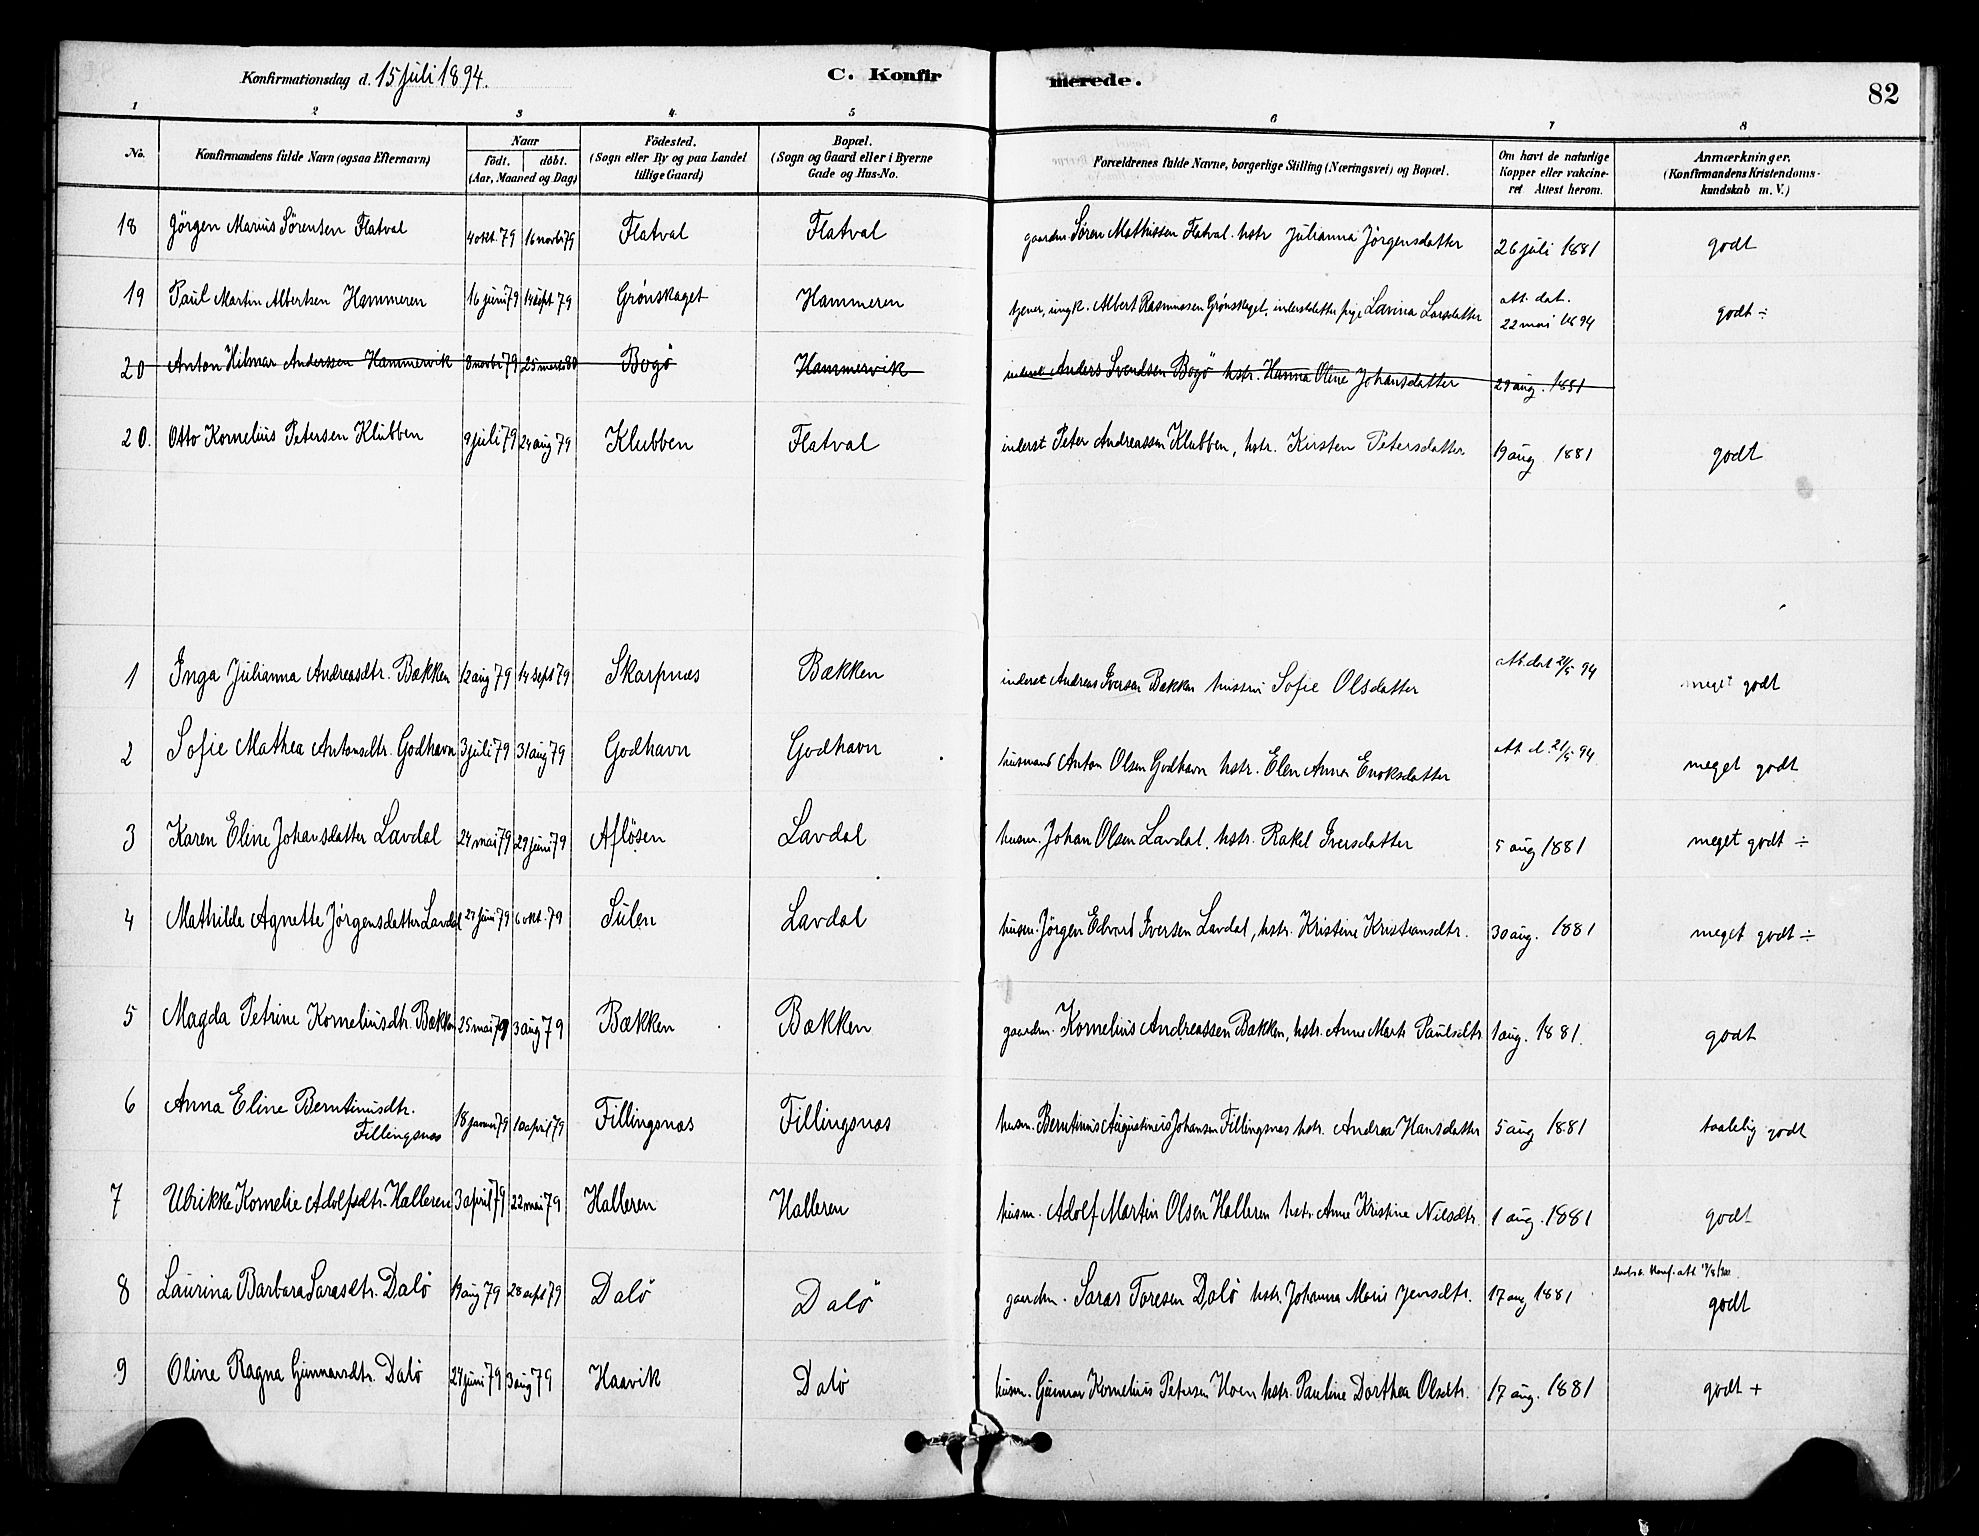 Konfirmationsdag d. 15 juli 1894.
C. Konfirmerede.
82
1 2 3 4 5 6 7 8
No.
Konfirmandens fulde Navn (ogsaa Efternavn)
Naar
födt. döbt.
(Aar, Maaned og Dag)
Födested.
(Sogn eller By og paa Landet
tillige Gaard)
Bopæl.
(Sogn og Gaard eller i Byerne
Gade og Hus-No.
Forældrenes fulde Navne, borgerlige Stilling (Næringsvei) og Bopæl.
Om havt de naturlige
Kopper eller vakcine-
ret Attest herom.
Anmærkninger.
(Konfirmandens Kristendoms-
kundskab m. V.)
18 Jörgen Marius Sörensen Flatval 4 okt. 79 16 novbr 79 Flatval Flatval gaardm. Sören Mathissen Flatval. hstr Julianna Jörgensdatter 26 juli 1881 godt
19 Paul Martin Albertsen Hammeren 16 juni 79 14 sept 79 Grönskaget Hammeren tjener, ungk. Albert Rasmussen Grönskaget, inderstdatter pige Lavina Larsdatter att. dat. 22 mai 1894 godt ÷
20 Anton Hilmar Anderssen Hammervik 8 novbr 79 25 marts 80 Bogö Hammervik inderst Anders Svendsen Bogö hstr. Hanna Oline Johansdatter 29 aug. 1881
20. Otto Kornelius Petersen Klubben 9 juli 79 24 aug 79 Klubben Flatval inderst Peter Andreassen Klubben, hstr. Kirsten Petersdatter 19 aug 1881 godt
1 Inga Julianna Andreasdtr. Bækken 12 aug 79 14 sept 79 Skarpnæs Bækken inderst Andreas Iversen Bækken hustru Sofie Olsdatter att. dat 21/5 94 meget godt
2 Sofie Mathea Antonsdtr. Godhavn 3 juli 79 31 aug 79 Godhavn Godhavn husmand Anton Olsen Godhavn hstr. Elen Anna Enoksdatter att. d. 21/5 94 meget godt
3 Karen Eline Johansdatter Lavdal 24 mai 79 29 juni 79 Aflösen Lavdal husm. Johan Olsen Lavdal, hstr. Rakel Iversdatter 5 aug 1881 meget godt ÷
4 Mathilde Agnette Jörgensdatter Lavdal 27 juni 79 6 okt. 79 Sulen Lavdal husm. Jörgen Edvard Iversen Lavdal, hstr. Kristine Kristiansdtr. 30 aug. 1881 meget godt ÷
5 Magda Petrine Korneliusdtr. Bækken 25 mai 79 3 aug 79 Bækken Bækken gaardm. Kornelius Andreassen Bækken, hstr. Anne Marta Paulsdtr 1 aug. 1881. godt
6 Anna Eline Berntinusdtr.
Fillingsnæs 18 januar 79 10 april 79 Fillingsnæs Fillingsnæs husm. Berntinus Augustinus Johansen Fillingsnæs hstr. Andrea Hansdatter 5 aug 1881 taalelig godt
7 Ulrikke Kornelie Adolfsdtr. Halleren 3 april 79 22 mai 79 Halleren Halleren husm. Adolf Martin Olsen Halleren hstr. Anne Kristine Nilsdtr. 1 aug. 1881 godt
8 Laurina Barbara Sarasdtr. Dalö 19 aug 79 28 sept 79 Dalö Dalö gaardm. Saras Toresen Dalö hstr. Johanna Maria Jensdtr. 17 aug 1881 godt
9 Oline Ragna Gunnarsdtr. Dalö 24 juni 79 3 aug 79 Haavik Dalö husm. Gunnar Kornelius Petersen Hoen hstr. Pauline Dorthea Olsdtr. 17 aug. 1881 godt +